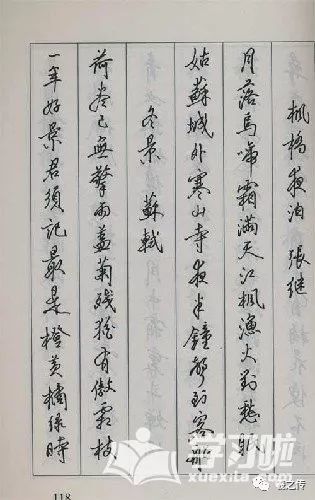 楓橋夜泊 張继
月落烏啼霜滿天江楓漁火對愁眠
姑蘇城外寒山寺夜半鐘聲到客船
冬景 蘇軾
荷尽已無擎雨蓋菊残猶有傲霜枝
一年好景君須記最是橙黄橘绿時
118
学习啦
xuexila.com
羲之传